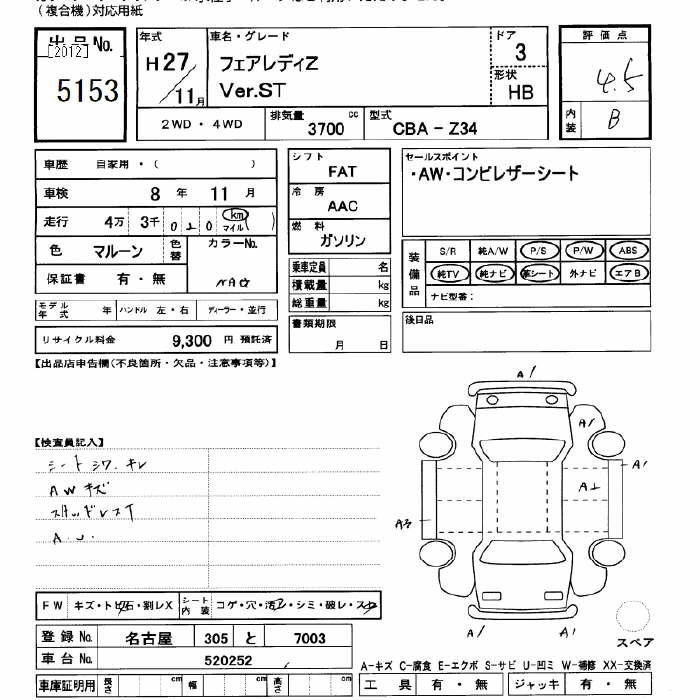 (複合機)対応用紙
出品No.
[2012]
5153
年式
H27/11月
車名・グレード
フェアレディZ
Ver.ST
ドア
3
形状
HB
評価点
4.5
内装
B
2WD・4WD
排気量
3700
cc
型式
CBA - Z34
車歴 自家用・( )
車検 8年 11月
走行 4万 3千 0 2 0 km マイル( )
色 マルーン 色替 カラーNo.
NAG
保証書 有・無
モデル年式 年 ハンドル 左・右 ディーラー・並行
リサイクル料金 9,300 円 預託済
シフト
FAT
冷房
AAC
燃料
ガソリン
乗車定員 名
積載量 kg
総重量 kg
書類期限
月 日
セールスポイント
・AW・コンビレザーシート
装備品
S/R 純A/W P/S P/W ABS
純TV 純ナビ 革シート 外ナビ エアB
ナビ型番:
後日品
【出品店申告欄(不良箇所・欠品・注意事項等)】
【検査員記入】
シートシワ.キレ
AWキズ
スタッドレスT
A.U.
A/
A/
A/
A
A/
A/
FW キズ・トビ石・割レX
シート内装 コゲ・穴・汚レ・シミ・破レ・スレ
登録No. 名古屋 305 と 7003
車台No. 520252
車庫証明用 長さ cm 幅 cm 高さ cm
スペア
A-キズ C-腐食 E-エクボ S-サビ U-凹ミ W-補修 XX-交換済
工具 有・無 ジャッキ 有・無